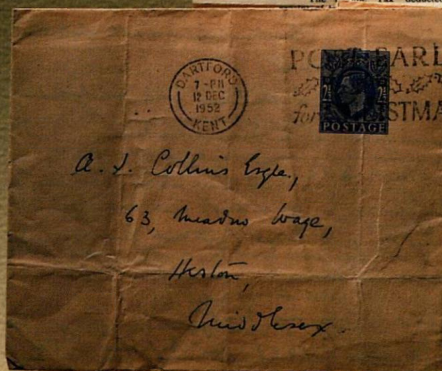 The
DARTFORD
7-PM
12 DEC
1952
KENT
POST EARLY
for CHRISTMAS
2½ 2½
POSTAGE
A. J. Collins Esqre.,
63, Meadow Waye,
Heston,
Middlesex.